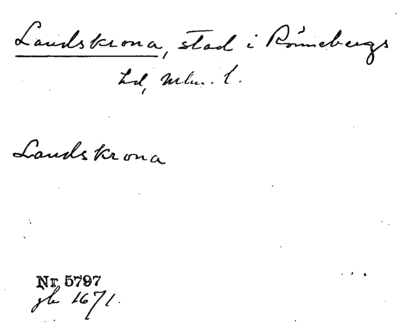 Landskrona, stad i Rönnebergs
hd, Mlm. l.
Landskrona
Nr 5797
gb 1671.